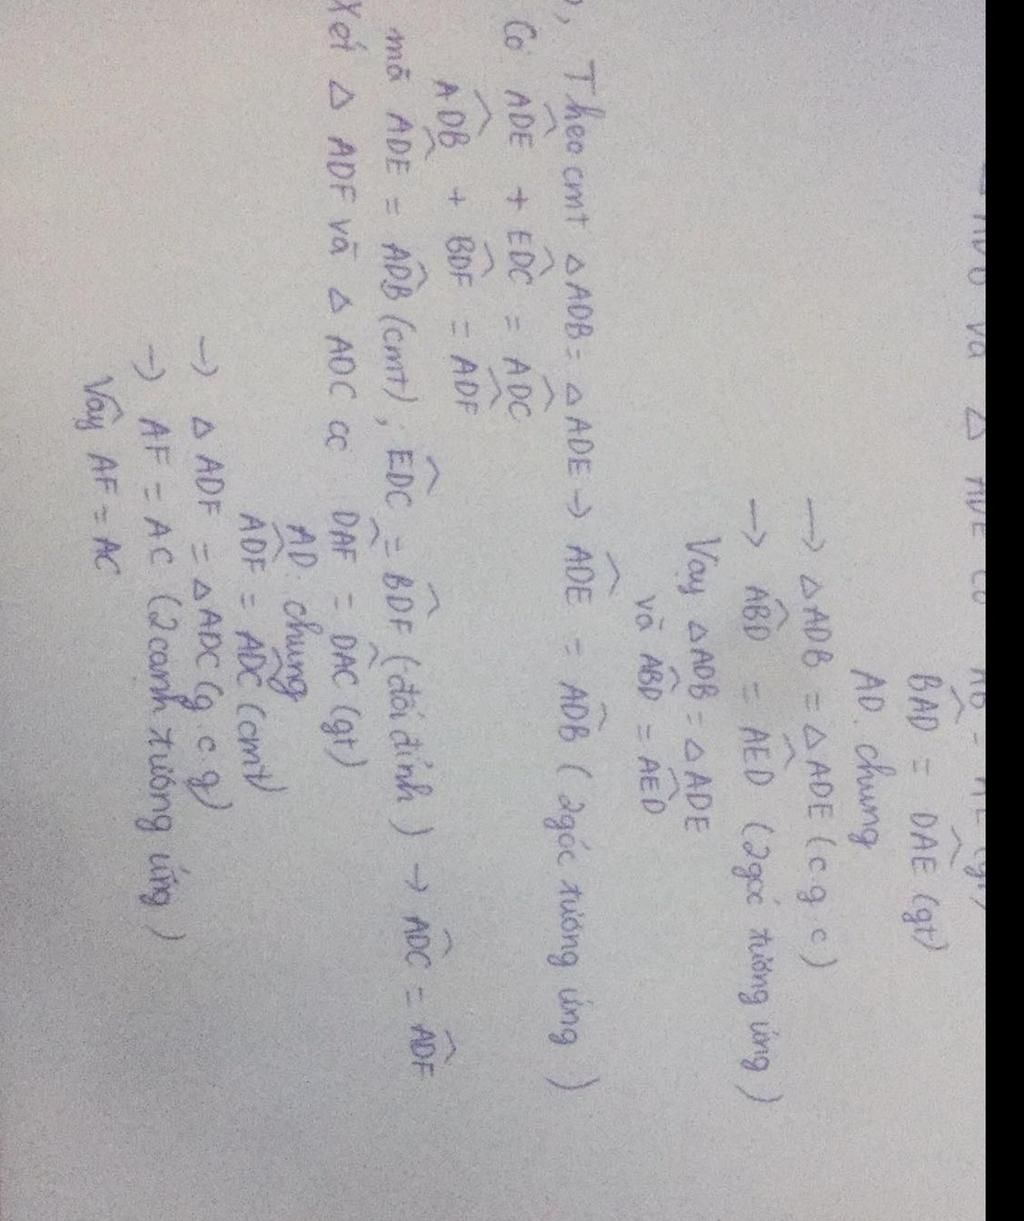 và Δ ADE có AB =
BAD̂ = DAÊ (gt)
AD. chung
→ Δ ADB = Δ ADE (c g. c)
→ ABD̂ = AED̂ (2góc tương ứng)
Vay Δ ADB = Δ ADE
và ABD̂ = AED̂
, Theo cmt Δ ADB = Δ ADE → ADÊ = ADB̂ (2góc tương ứng)
Có ADÊ + EDĈ = ADĈ
ADB̂ + BDF̂ = ADF̂
mã ADÊ = ADB̂ (cmt), EDĈ = BDF̂ (đối đỉnh) → ADĈ = ADF̂
Xét Δ ADF và Δ ADC có DAF̂ = DAĈ (gt)
AD. chung
ADF̂ = ADĈ (cmt)
→ Δ ADF = Δ ADC (g. c. g)
→ AF = AC (2 cạnh tương ứng)
Vây AF = AC